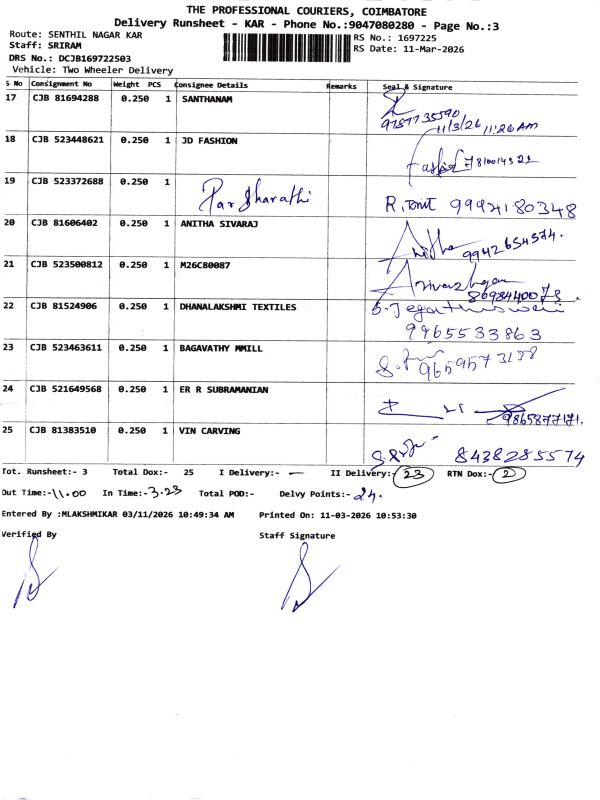 THE PROFESSIONAL COURIERS, COIMBATORE
Delivery Runsheet - KAR - Phone No.:9047080280 - Page No.:3
Route: SENTHIL NAGAR KAR
RS No.: 1697225
Staff: SRIRAM
RS Date: 11-Mar-2026
DRS No.: DCJB169722503
Vehicle: Two Wheeler Delivery
S No Consignment No Weight PCS Consignee Details Remarks Seal & Signature
17 CJB 81694288 0.250 1 SANTHANAM
11/3/26 11:26 AM
18 CJB 523448621 0.250 1 JD FASHION
19 CJB 523372688 0.250 1 99941 80348
20 CJB 81606402 0.250 1 ANITHA SIVARAJ Anitha 9942654574.
21 CJB 523500812 0.250 1 M26C80087 8098440073
22 CJB 81524906 0.250 1 DHANALAKSHMI TEXTILES
9965533863
23 CJB 523463611 0.250 1 BAGAVATHY MMILL
24 CJB 521649568 0.250 1 ER R SUBRAMANIAN
25 CJB 81383510 0.250 1 VIN CARVING 8438285574
Tot. Runsheet:- 3 Total Dox:- 25 I Delivery:- — II Delivery:- 23 RTN Dox:- 2
Out Time:- 11.00 In Time:- 3.23 Total POD:- Delvy Points:- 24.
Entered By :MLAKSHMIKAR 03/11/2026 10:49:34 AM Printed On: 11-03-2026 10:53:30
Verified By Staff Signature